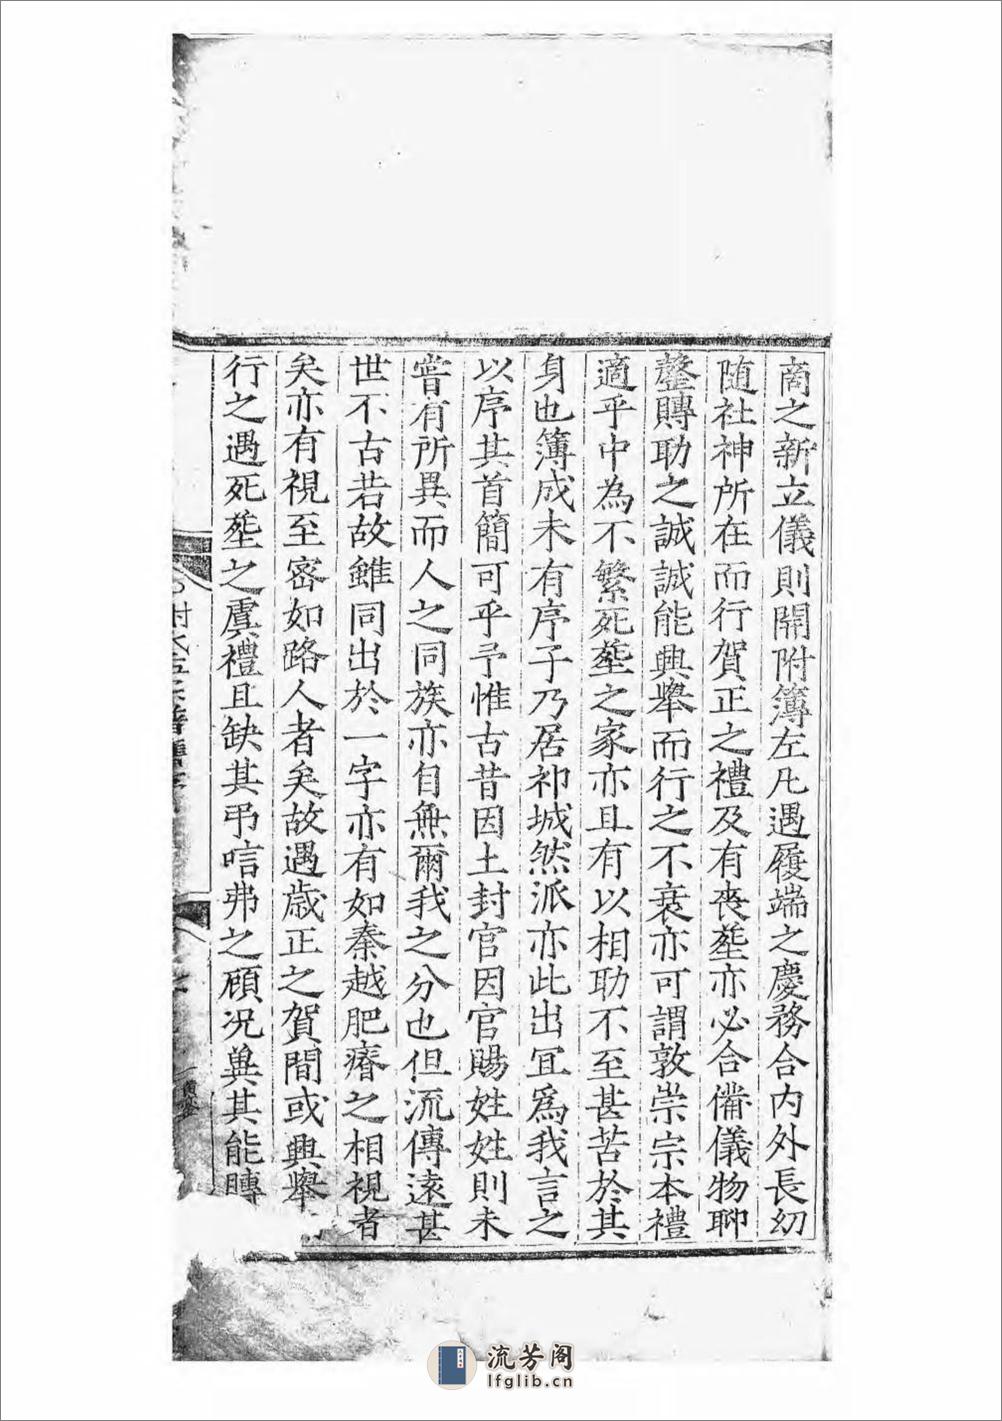 商之新立儀則開附簿左凡遇履端之慶務合內外長幼
随社神所在而行賀正之禮及有喪塟亦必合備儀物聊
罄賻助之誠誠能興舉而行之不衰亦可謂敦崇宗本禮
適乎中為不繁死塟之家亦且有以相助不至甚苦於其
身也簿成未有序子乃居祁城然派亦此出宜爲我言之
以序其首簡可乎予惟古昔因土封官因官賜姓姓則未
嘗有所異而人之同族亦自無爾我之分也但流傳遠甚
世不古若故雖同出於一字亦有如秦越肥瘠之相視者
矣亦有視至密如路人者矣故遇歲正之賀間或興舉
行之遇死塟之虞禮且缺其弔唁弗之顧况兾其能賻
流芳阁
lfglib.cn